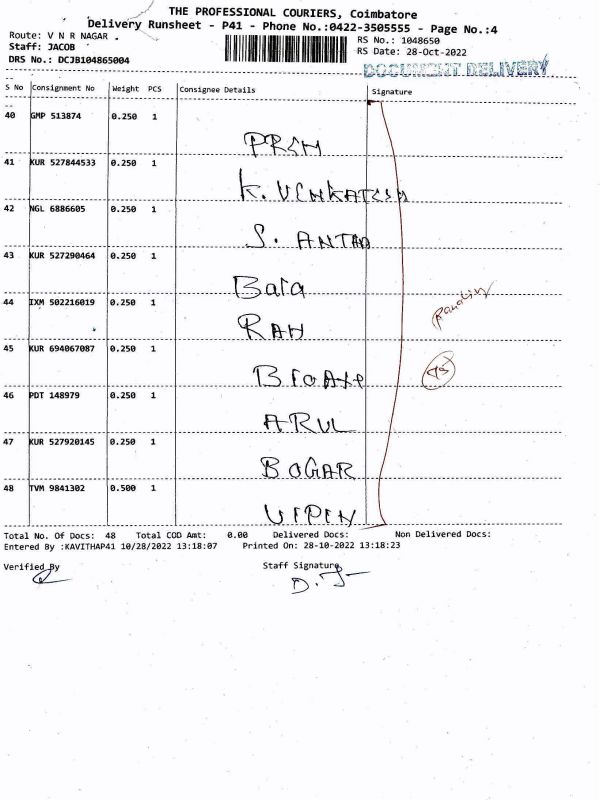 THE PROFESSIONAL COURIERS, Coimbatore
Delivery Runsheet - P41 - Phone No.:0422-3505555 - Page No.:4
Route: V N R NAGAR .
RS No.: 1048650
Staff: JACOB
RS Date: 28-Oct-2022
DRS No.: DCJB104865004
DOCUMENT DELIVERY
S No Consignment No Weight PCS Consignee Details Signature
40 GMP 513874 0.250 1
41 KUR 527844533 0.250 1
K. VENKATESH
42 NGL 6886605 0.250 1
S.
43 KUR 527290464 0.250 1
Bala
44 IXM 502216019 0.250 1
RAM
45 KUR 694067087 0.250 1
46 PDT 148979 0.250 1
ARUL
47 KUR 527920145 0.250 1
BOGAR
48 TVM 9841302 0.500 1
VIPIN
Total No. Of Docs: 48 Total COD Amt: 0.00 Delivered Docs: Non Delivered Docs:
Entered By :KAVITHAP41 10/28/2022 13:18:07 Printed On: 28-10-2022 13:18:23
Verified By Staff Signature